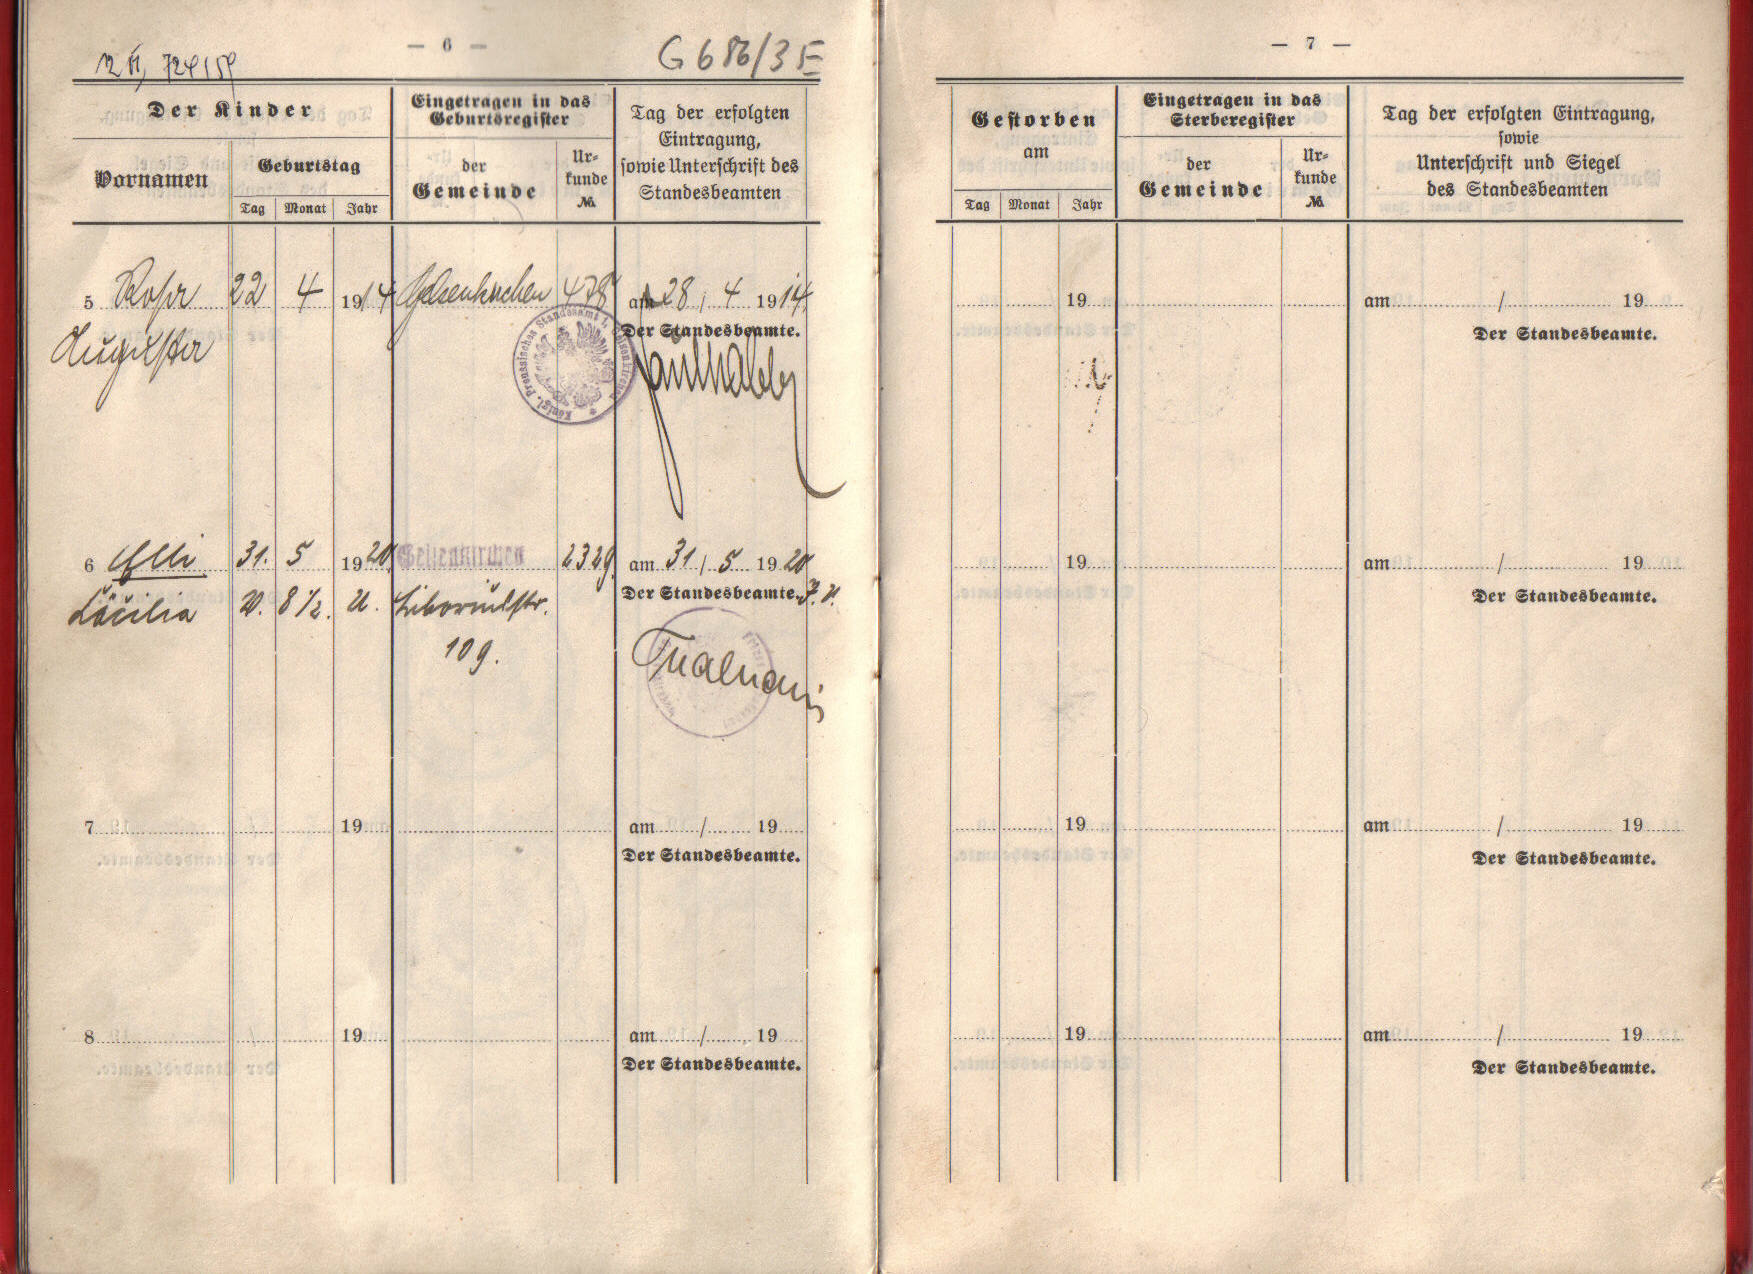 — 6 —
G 686/3 E
Der Kinder
Eingetragen in das
Geburtsregister
Tag der erfolgten
Eintragung,
sowie Unterschrift des
Standesbeamten
Vornamen
Geburtstag
der
Gemeinde
Ur-
kunde
№
Tag Monat Jahr
5 22 4 1914 Gelsenkirchen 478 am 28 / 4 1914
Der Standesbeamte.
Königl. Preussisches Standesamt I. Gelsenkirchen
6 Elli 31. 5 1920 2329 am 31 / 5 1920
Cäcilia V. 8 1/2 U. Liboriusstr. Der Standesbeamte.
109.
7 19 am / 19
Der Standesbeamte.
8 19 am / 19
Der Standesbeamte.
— 7 —
Gestorben
am
Eingetragen in das
Sterberegister
Tag der erfolgten Eintragung,
sowie
Unterschrift und Siegel
des Standesbeamten
der
Gemeinde
Ur-
kunde
№
Tag Monat Jahr
19 am / 19
Der Standesbeamte.
19 am / 19
Der Standesbeamte.
19 am / 19
Der Standesbeamte.
19 am / 19
Der Standesbeamte.